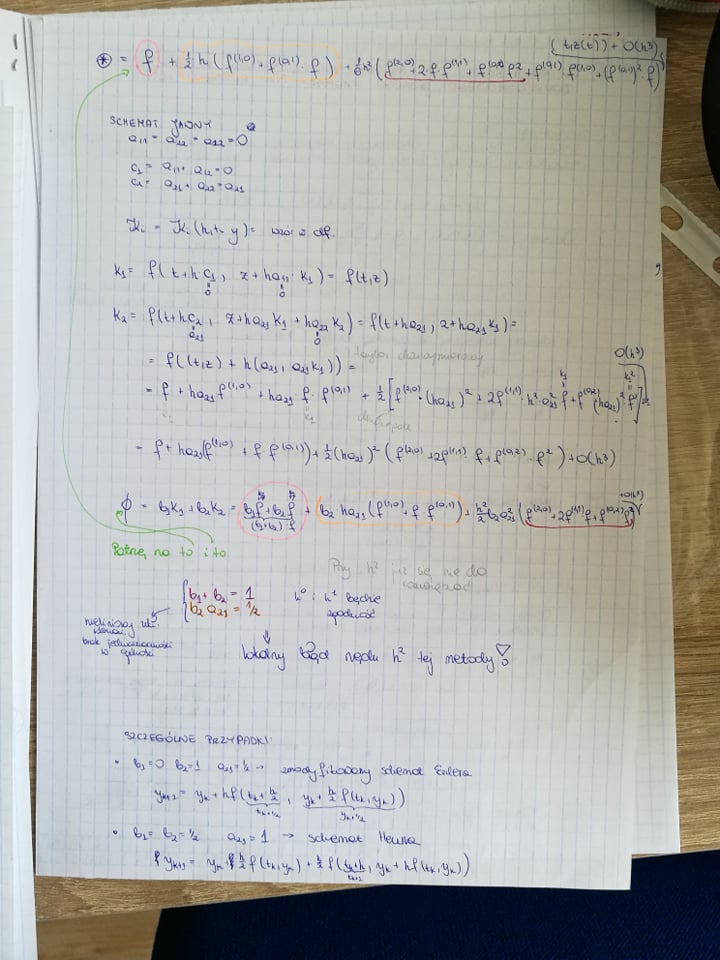 {t,z(t)) + O(h³)
⊛ = f + ½ h (f^(1,0) + f^(0,1) · f) + ⅙h² (f^(2,0) + 2f · f^(1,1) + f^(0,2) · f² + f^(0,1) · f^(1,0) + (f^(0,1))² f)
SCHEMAT JAWNY
a₁₁ = a₁₂ = a₂₂ = 0
c₁ = a₁₁ + a₁₂ = 0
c₂ = a₂₁ + a₂₂ = a₂₁
Ki = Ki (h, t, y) = wzór w def.
k₁ = f(t + h c₁, z + h a₁₁ · k₁) = f(t,z)
0 0
K₂ = f(t + h c₂, z + h a₂₁ K₁ + h a₂₂ K₂) = f(t + h a₂₁, z + h a₂₁ k₁) =
a₂₁ 0
= f((t,z) + h(a₂₁, a₂₁ k₁)) = O(h³)
= f + h a₂₁ f^(1,0) + h a₂₁ · f · f^(0,1) + ½ [f^(2,0) · (h a₂₁)² + 2 f^(1,1) · h² · a₂₁² f + f^(0,2) (h a₂₁)² f²]
k₁ k₁ k₁²
= f + h a₂₁ (f^(1,0) + f · f^(0,1)) + ½ (h a₂₁)² (f^(2,0) + 2f^(1,1) · f + f^(0,2) · f²) + O(h³)
ϕ = b₁K₁ + b₂K₂ = b₁f + b₂f + b₂ · h a₂₁ (f^(1,0) + f · f^(0,1)) + h²/2 b₂ a₂₁² (f^(2,0) + 2f^(1,1) f + f^(0,2) f²) + O(h³)
(b₁+b₂) · f
Patrzę na to i to
Przy h² już się nie da
{ b₁ + b₂ = 1 h⁰ i h¹ będzie
b₂ a₂₁ = 1/2 zgodność
nieliniowy ukł.
brak jednoznaczności
w ogólności
lokalny błąd rzędu h² tej metody!
SZCZEGÓLNE PRZYPADKI:
• b₁ = 0 b₂ = 1 a₂₁ = ½ → zmodyfikowany schemat Eulera
y_k+1 = y_k + h f(t_k + h/2, y_k + h/2 f(t_k, y_k))
t_k+1/2 y_k+1/2
• b₁ = b₂ = ½ a₂₁ = 1 → schemat Heuna
y_k+1 = y_k + h/2 f(t_k, y_k) + h/2 f(t_k + h, y_k + h f(t_k, y_k))
t_k+1